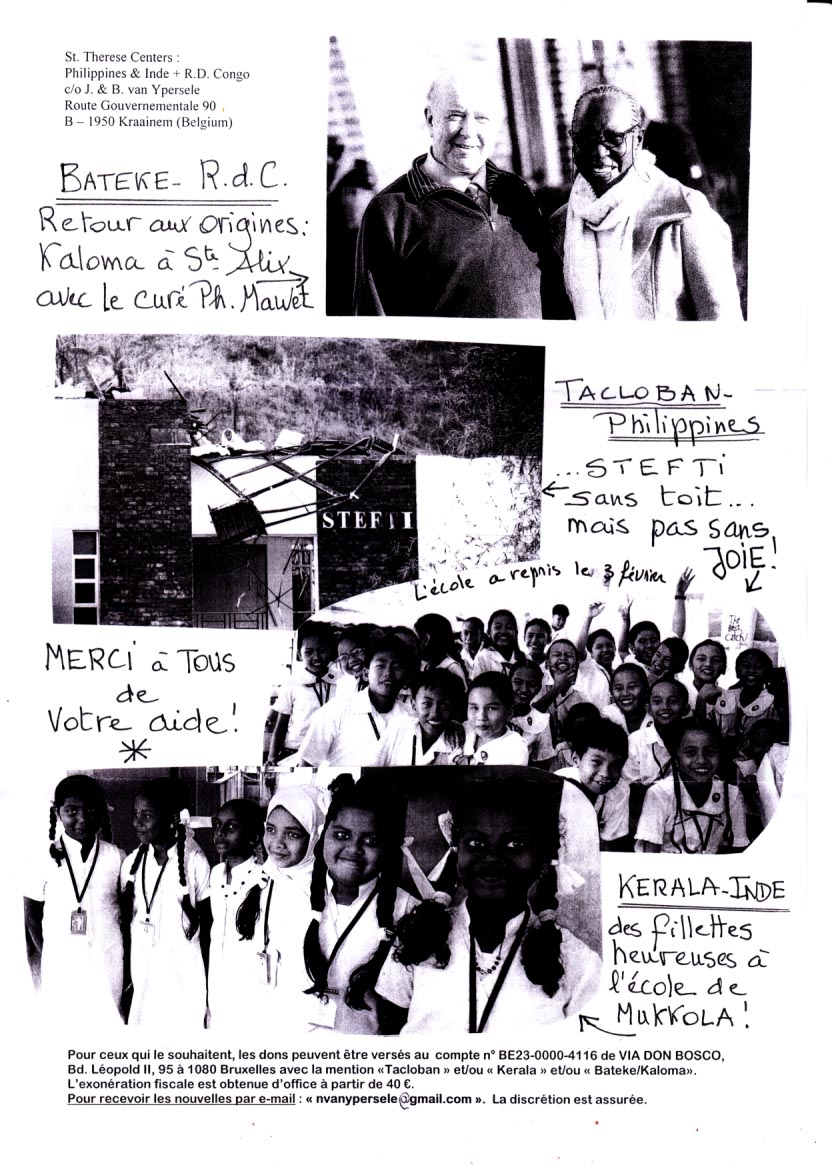 St. Therese Centers :
Philippines & Inde + R.D. Congo
c/o J. & B. van Ypersele
Route Gouvernementale 90
B – 1950 Kraainem (Belgium)
BATEKE- R.d.C.
Retour aux origines:
Kaloma à Ste Alix
avec le curé Ph. Mawet
TACLOBAN-
Philippines
...STEFTI
sans toit...
mais pas sans
JOIE!
STEFTI
L'école a repris le 3 février
The
Best
Catch!
MERCI à TOUS
de
Votre aide!
KERALA-INDE
des fillettes
heureuses à
l'école de
MUKKOLA!
Pour ceux qui le souhaitent, les dons peuvent être versés au compte n° BE23-0000-4116 de VIA DON BOSCO,
Bd. Léopold II, 95 à 1080 Bruxelles avec la mention «Tacloban » et/ou « Kerala » et/ou « Bateke/Kaloma».
L'exonération fiscale est obtenue d'office à partir de 40 €.
Pour recevoir les nouvelles par e-mail : « nvanypersele@gmail.com ». La discrétion est assurée.